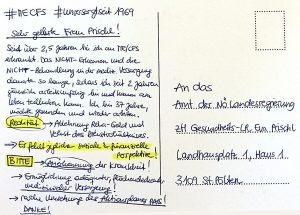 #MECFS #unversorgtseit1969
Sehr geehrte Frau Prischl!
Seit über 2,5 Jahren bin ich an ME/CFS
erkrankt. Das NICHT-Erkennen und die
NICHT-Behandlung in der mediz. Versorgung
dauerte so lange, sodass ich seit 2 Jahren
gänzlich arbeitsunfähig bin und kaum am
Leben teilhaben kann. Ich bin 37 Jahre,
möchte gesunden und wieder arbeiten.
Realität → Ablehnung Reha-Geld und
Verlust des Dienstverhältnisses.
→ Es fehlt jegliche soziale & finanzielle
Perspektive!
BITTE → Anerkennung der Krankheit!
→ Ermöglichung adäquater, flächendeckender
medizinischer Versorgung!
→ rasche Umsetzung des Aktionsplanes PAIS
DANKE!
An das
Amt der NÖ Landesregierung
ZH Gesundheits-LR Eva Prischl
Landhausplatz 1, Haus 1
3109 St. Pölten